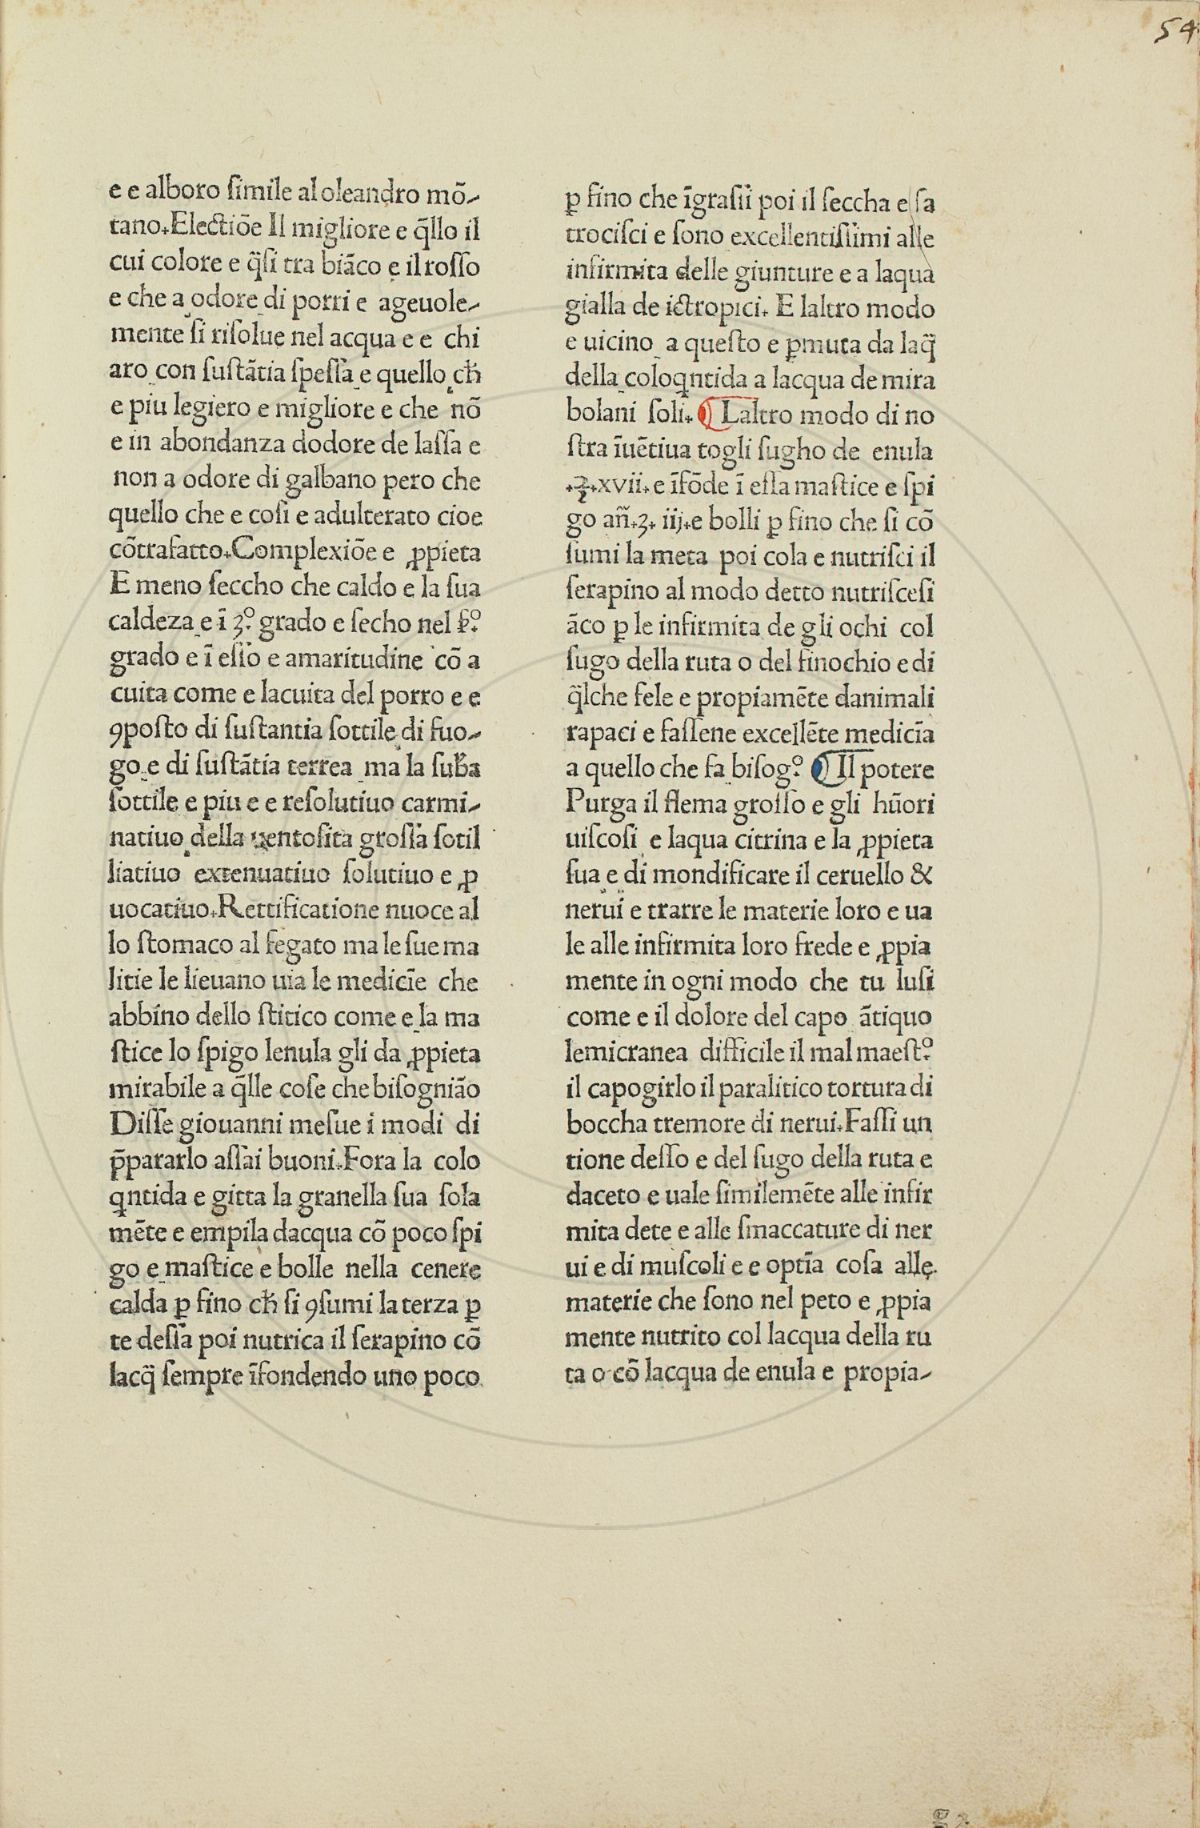 54
e e alboro ſimile al oleandro mõ-
tano.Electiõe Il migliore e q̃llo il
cui colore e q̃ſi tra biãco e il roſſo
e che a odore di porri e ageuole-
mente ſi riſolue nel acqua e e chi
aro con ſuſtãtia ſpeſſa e quello cħ
e piu legiero e migliore e che nõ
e in abondanza dodore de laſſa e
non a odore di galbano pero che
quello che e coſi e adulterato cioe
cõtrafatto.Complexiõe e ꝓpieta
E meno ſeccho che caldo e la ſua
caldeza e ĩ 3º grado e ſecho nel pº
grado e ĩ eſſo e amaritudine cõ a
cuita come e lacuita del porro e e
ꝯpoſto di ſuſtantia ſottile di fuo-
go e di ſuſtãtia terrea ma la ſuƀa
ſottile e piu e e reſolutiuo carmi-
natiuo della uentoſita groſſa ſotil
liatiuo extenuatiuo ſolutiuo e ꝓ
uocatiuo.Rettificatione nuoce al
lo ſtomaco al fegato ma le ſue ma
litie le lieuano uia le mediciẽ che
abbino dello ſtitico come e la ma
ſtice lo ſpigo lenula gli da ꝓpieta
mirabile a q̃lle coſe che biſognião
Diſſe giouanni meſue i modi di
p̃pararlo aſſai buoni.Fora la colo
qntida e gitta la granella ſua ſola
mẽte e empila dacqua cõ poco ſpi
go e maſtice e bolle nella cenere
calda ꝑ fino cħ ſi ꝯſumi la terza ꝑ
te deſſa poi nutrica il ſerapino cõ
lacq̃ ſempre ĩfondendo uno poco
ꝑ fino che ĩgraſii poi il ſeccha e fa
trociſci e ſono excellentiſſimi alle
infirmita delle giunture e a laqua
gialla de ictropici. E laltro modo
e uicino a queſto e ꝑmuta da laq̃
della coloqntida a lacqua de mira
bolani ſoli. ¶ Laltro modo di no
ſtra ĩuẽtiua togli ſugho de enula
.℥.xvii.e ĩfõde ĩ eſſa maſtice e ſpi
go añ.ʒ. iij.e bolli ꝑ fino che ſi cõ
ſumi la meta poi cola e nutriſci il
ſerapino al modo detto nutriſceſi
ãco ꝑ le infirmita de gli ochi col
ſugo della ruta o del finochio e di
q̃lche fele e propiamẽte danimali
rapaci e faſſene excellẽte mediciã
a quello che fa biſogº ¶ Il potere
Purga il flema groſſo e gli hũori
uiſcoſi e laqua citrina e la ꝓpieta
ſua e di mondificare il ceruello &
nerui e trarre le materie loro e ua
le alle infirmita loro frede e ꝓpia
mente in ogni modo che tu luſi
come e il dolore del capo ãtiquo
lemicranea difficile il mal maeſtº
il capogirlo il paralitico tortura di
boccha tremore di nerui.Faſſi un
tione deſſo e del ſugo della ruta e
daceto e uale ſimilemẽte alle infir
mita dete e alle ſmaccature di ner
ui e di muſcoli e e optĩa coſa alle
materie che ſono nel peto e ꝓpia
mente nutrito col lacqua della ru
ta o cõ lacqua de enula e propia-